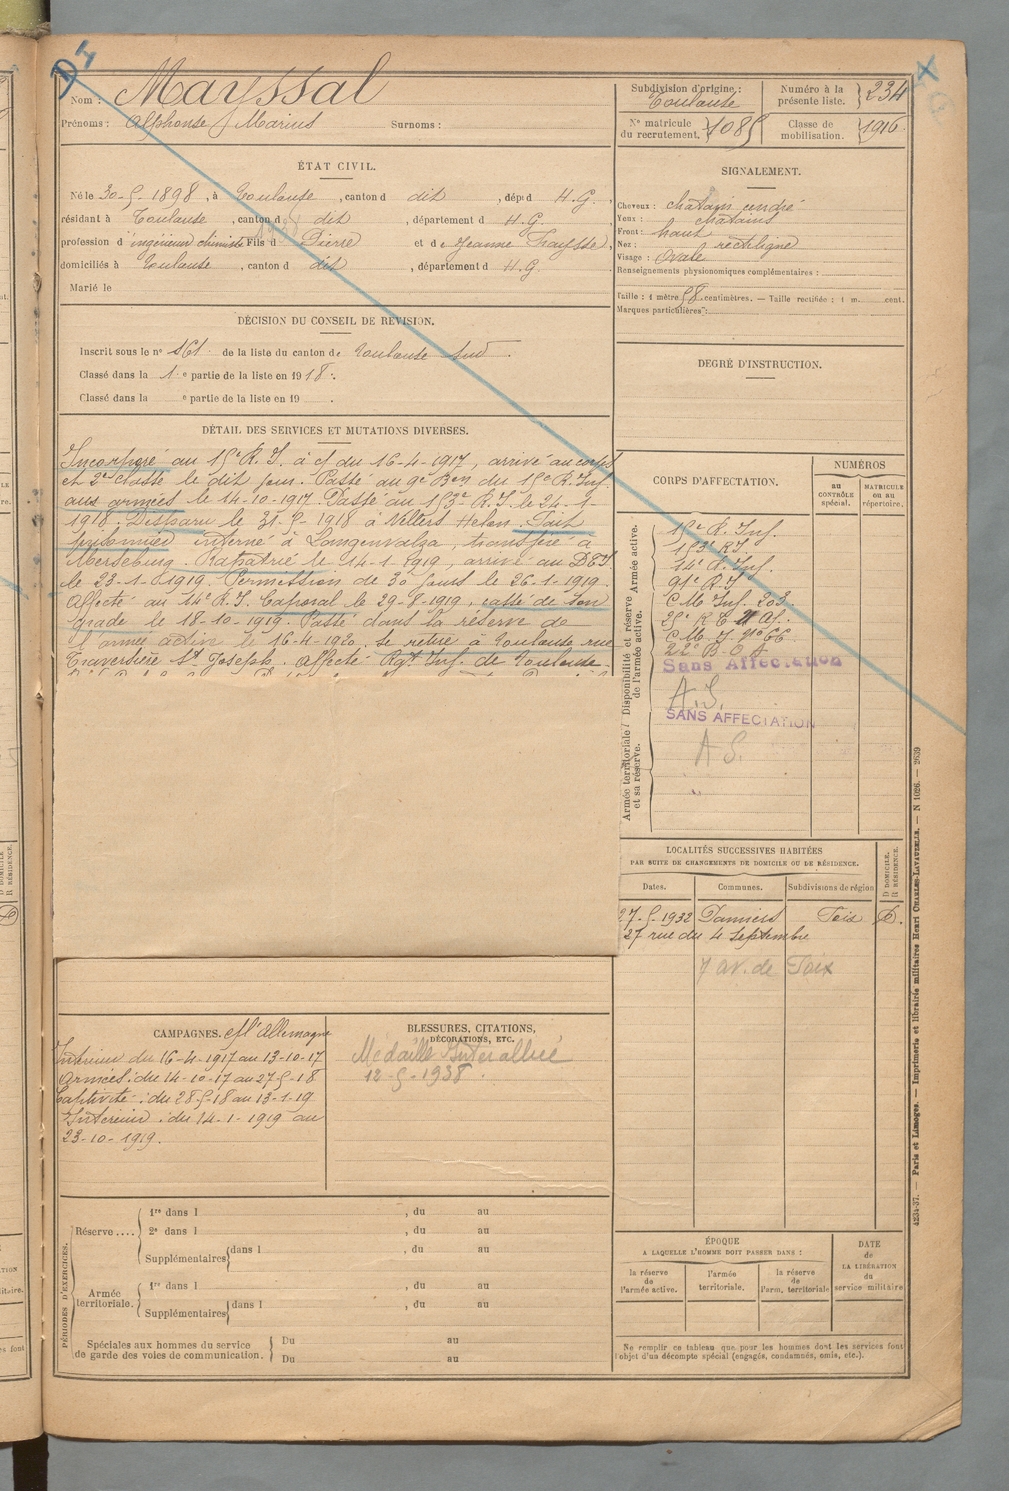 D4
Nom : Mayssal
Prénoms : Alphonse Marius Surnoms :
Subdivision d'origine : Toulouse
Numéro à la présente liste. 234
N° matricule du recrutement. 1085
Classe de mobilisation. 1916
ÉTAT CIVIL.
Né le 30-5-1898, à Toulouse, canton d dit, dép¹ d H.G.
résidant à Toulouse, canton d dit, département d H.G.
profession d'ingénieur chimiste Fils d Pierre et de Jeanne Traysse,
domiciliés à Toulouse, canton d dit, département d H.G.
Marié le
DÉCISION DU CONSEIL DE RÉVISION.
Inscrit sous le n° 161 de la liste du canton de Toulouse Sud.
Classé dans la 1e partie de la liste en 1918.
Classé dans la e partie de la liste en 19 .
DÉTAIL DES SERVICES ET MUTATIONS DIVERSES.
Incorporé au 15e R.I. à c/ du 16-4-1917, arrivé au corps
et 2e classe le dit jour. Passé au 9e Bon du 15e R. Inf.
aux armées le 14-10-1917. Passé au 153e R.I. le 24-3-
1918. Disparu le 31-5-1918 à Villers Helon. Fait
prisonnier interné à Langenvalza, transféré à
Merseburg. Rapatrié le 14-1-1919, arrivé au D
le 23-1-1919. Permission de 30 jours le 26-1-1919.
Affecté au 14e R.I. Caporal le 29-8-1919, cassé de son
grade le 18-10-1919. Passé dans la réserve de
l'armée active le 16-4-1920. Se retire à Toulouse rue
Traversière St Joseph. Affecté Rgt Inf. de Toulouse.
CAMPAGNES. c/ l'Allemagne
Intérieur du 16-4-1917 au 13-10-17
Armées : du 14-10-17 au 27-5-18
Captivité : du 28-5-18 au 13-1-19
Intérieur : du 14-1-1919 au
23-10-1919.
BLESSURES, CITATIONS,
DÉCORATIONS, ETC.
Médaille Interalliée
12-5-1938.
PÉRIODES D'EXERCICES.
Réserve....
1re dans l , du au
2e dans l , du au
Supplémentaires dans l , du au
Armée territoriale.
1re dans l , du au
Supplémentaires dans l , du au
Spéciales aux hommes du service
de garde des voies de communication.
Du au
Du au
SIGNALEMENT.
Cheveux : châtain cendré
Yeux : châtains
Front : haut
Nez : rectiligne
Visage : Ovale
Renseignements physionomiques complémentaires :
Taille : 1 mètre 58 centimètres. — Taille rectifiée : 1 m. cent.
Marques particulières :
DEGRÉ D'INSTRUCTION.
CORPS D'AFFECTATION.
NUMÉROS
au CONTRÔLE spécial.
MATRICULE ou au répertoire.
Armée active.
Disponibilité et réserve de l'armée active.
Armée territoriale et sa réserve.
15e R. Inf.
153e R.I.
14e R. Inf.
CM Inf. 203
22e B.O.A
Sans Affectation
A.S.
SANS AFFECTATION
A S.
"
LOCALITÉS SUCCESSIVES HABITÉES
PAR SUITE DE CHANGEMENTS DE DOMICILE OU DE RÉSIDENCE.
Dates. Communes. Subdivisions de région
D DOMICILE.
R RÉSIDENCE.
27-5-1932 Pamiers Foix D.
27 rue du 4 Septembre
7 av. de Foix
ÉPOQUE
A LAQUELLE L'HOMME DOIT PASSER DANS :
la réserve de l'armée active.
l'armée territoriale.
la réserve de l'arm. territoriale
DATE de LA LIBÉRATION du service militaire
Ne remplir ce tableau que pour les hommes dont les services font
l'objet d'un décompte spécial (engagés, condamnés, omis, etc.).
4234-37. — Paris et Limoges. — Imprimerie et librairie militaires Henri CHARLES-LAVAUZELLE. — N 1026. — 2639